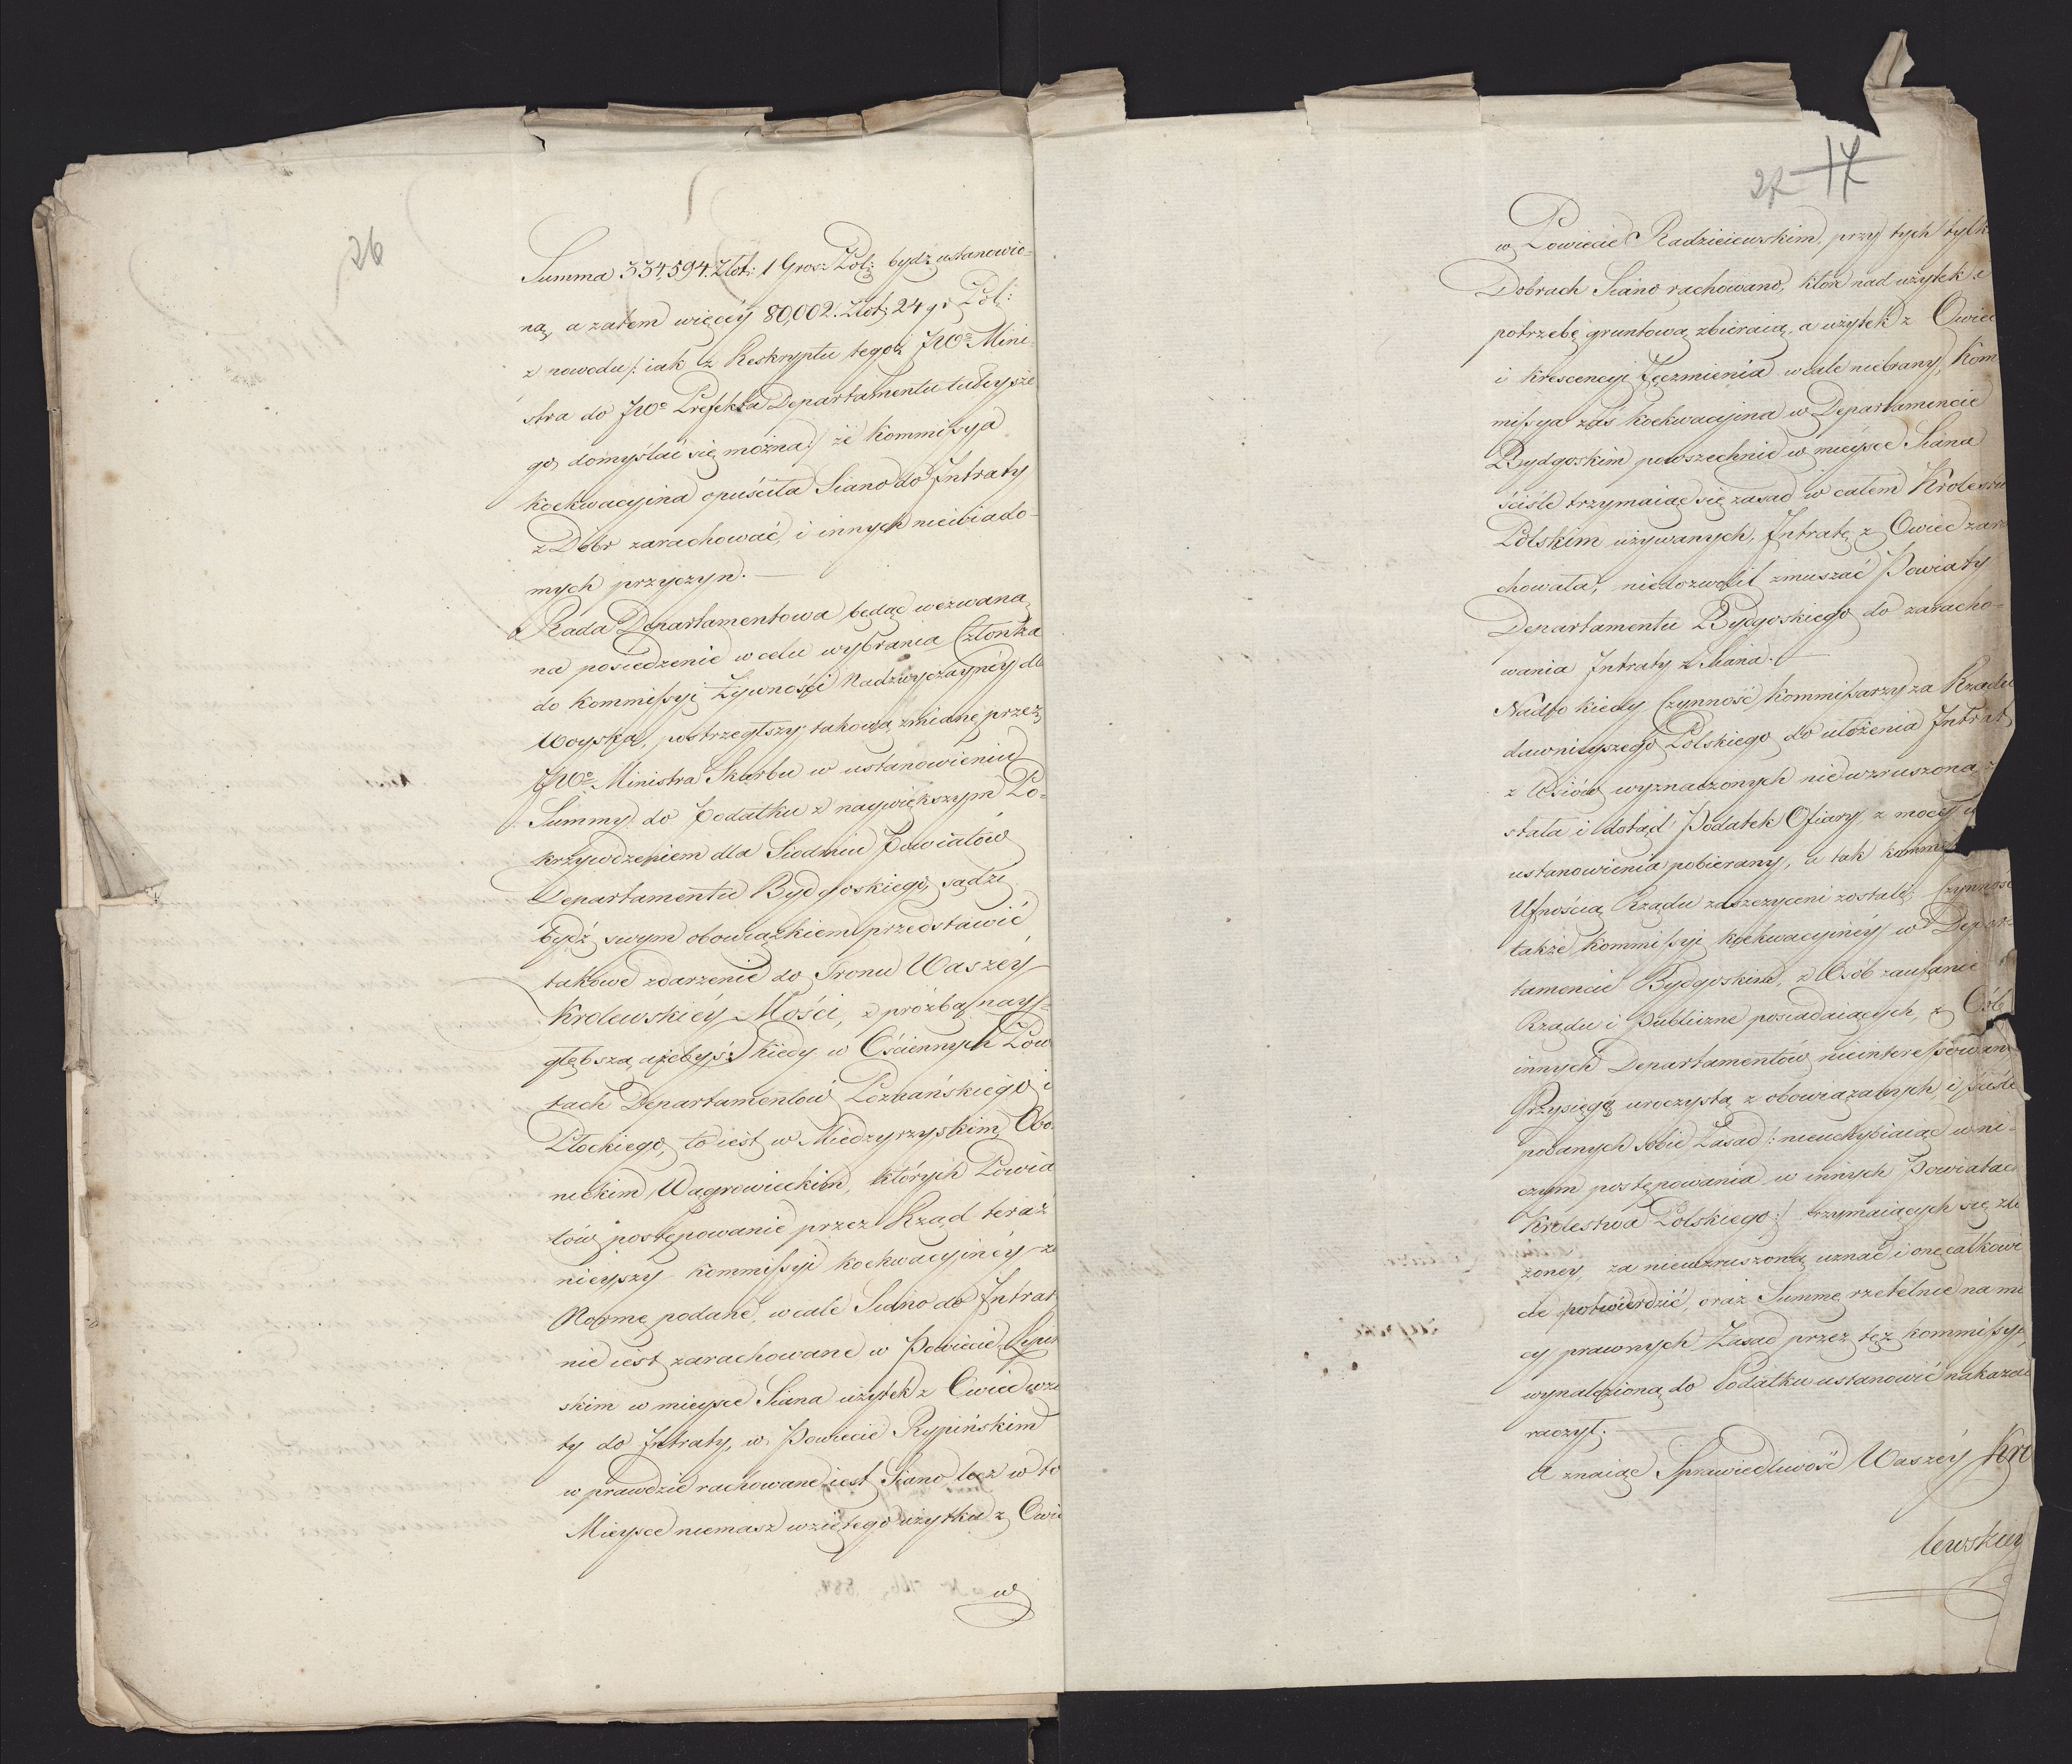 26
Summa 334,594. Złot: 1 Grosz Pol: bydź ustanowio-
na, a zatem więcéy 80,002. Złot: 24 gr Pol:
z powodu /: iak z Reskryptu tegoż JWo Mini-
stra do JWo Prefekta Departamentu tuteysze
go, domyślać się można :/ że Kommissya
Koekwacyjna opuściła Siano do Intraty
z Dóbr zarachować, i innych niewiado-
mych przyczyn. —
Rada Departamentowa będąc wezwana,
na posiedzenie w celu wybrania Członka
do Kommissyi Żywności Nadzwyczayney dla
Woyska, postrzegłszy takową zmianę przez
JWo Ministra Skarbu w ustanowieniu
Summy do Podatku z naywiększym Po-
krzywdzeniem dla Siedmiu Powiatów
Departamentu Bydgoskiego, sądzi
bydź swym obowiązkiem przedstawić
takowe zdarzenie do Tronu Waszéy
Krolewskiéy Mości, z prózbą nay-
głębszą, ażebyś: kiedy w Ościennych Powia
tach Departamentów Poznańskiego i
Płockiego, to iest w Miedzyrzyskim, Obo-
nickim, Wągrowieckim, których Powia
tów postępowanie przez Rząd teraź
nieyszy Kommissyi Koekwacyinéy za
Normę podane, wcale Siano do Intrat
nie iest zarachowane w Powiecie Lipin
skim w mieysce Siana użytek z Owiec wzię
ty do Intraty, w Powiecie Rypińskim
w prawdzie rachowane iest Siano lecz w to
Mieysce niemasz wziętego użytku z Owie
w
27 17
w Powiecie Radzieiewskim przy tych tylko
Dobrach Siano rachowano, które nad użytek i
potrzebę gruntową zbieraią, a użytek z Owiec
i Krescencyi Jęczmienia wcale niebrany, Kom
missya zaś Koekwacyjna w Departamencie
Bydgoskim powszechnie w mieysce Siana
ściśle trzymaiąc się zasad w całem Krolestwie
Polskim używanych, Intratę z Owiec zara
chowała, niedozwolił zmuszać Powiaty
Departamentu Bydgoskiego do zaracho-
wania Intraty z Siana. —
Nadto kiedy Czynność Kommissarzy za Rządu
dawnieyszego Polskiego do ułożenia Intrat
z Wsiów wyznaczonych niewzruszoną z
stała i dotąd Podatek Ofiary z mocy
ustanowienia pobierany, a tak
Ufnością Rządu zaszczyceni zostali; Czynność
także Kommissyi Koekwacyinéy w Depar-
tamencie Bydgoskim, z Osób zaufanie
Rządu i Publiczne posiadaiących, z Osób
innych Departamentów nieinteressowany
Przysięgą uroczystą z obowiązanych, i ściśle
podanych sobie Zasad /: nieuchybiaiąc w ni-
czym postępowania w innych Powiatach
Krolestwa Polskiego :/ trzymaiących się zło
żoney, za niewzruszoną uznać i onę całkowi
cie potwierdzić, oraz Summę rzetelnie na mo
cy prawnych Zasad przez też Kommissyę
wynalezioną do Podatku ustanowić nakazać
raczył. —
A znaiąc Sprawiedliwość Waszéy Kro
lewskiey